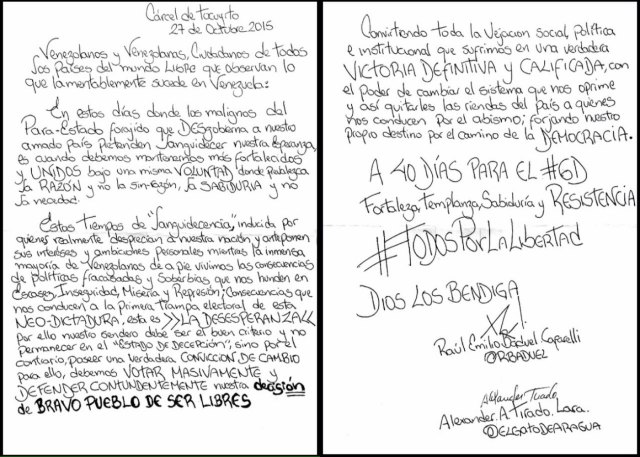 Cárcel de Tocuyito
27 de Octubre 2015
Venezolanos y Venezolanas, Ciudadanos de todos
los Países del mundo LIBRE que observan lo
que lamentablemente sucede en Venezuela:
En estos días donde los malignos del
Para-Estado forajido que DESgobierna a nuestro
amado país pretenden languidecer nuestra Esperanza,
es cuando debemos mantenernos más fortalecidos
y UNIDOS bajo una misma VOLUNTAD donde prevalezca
la RAZÓN y no la sin-razón, la SABIDURIA y no
la necedad.
Estos Tiempos de "languidecencia", inducida por
quienes realmente desprecian a nuestra nación y anteponen
sus intereses y ambiciones personales mientras la inmensa
mayoría de Venezolanos de a pie vivimos las consecuencias
de políticas fracasadas y soberbias que nos hunden en
Escases, Inseguridad, Miseria y Represión; Consecuencias que
nos conducen a la Primera Trampa electoral de esta
NEO-DICTADURA, esta es >>LA DESESPERANZA<<
por ello nuestro sendero debe ser el buen criterio y no
permanecer en el "ESTADO DE DECEPCIÓN", sino por el
contrario, poseer una verdadera CONVICCION DE CAMBIO
para ello, debemos VOTAR MASIVAMENTE y
DEFENDER CONTUNDENTEMENTE nuestra decisión
de BRAVO PUEBLO DE SER LIBRES
Convirtiendo toda la Vejacion social, política
e institucional que sufrimos en una verdadera
VICTORIA DEFINITIVA y CALIFICADA, con
el poder de cambiar el sistema que nos oprime
y así quitarles las riendas del país a quienes
nos conducen por el abismo; forjando nuestro
propio destino por el camino de la DEMOCRACIA.
A 40 DÍAS PARA EL #6D
Fortaleza, Templanza, Sabiduría y RESISTENCIA
#TODOSPORLALIBERTAD
DIOS LOS BENDIGA
Raúl Emilio Baduel Cafarelli
@RBADUEL
Alexander Tirado
Alexander. A. Tirado. Lara.
@ELGATODEARAGUA